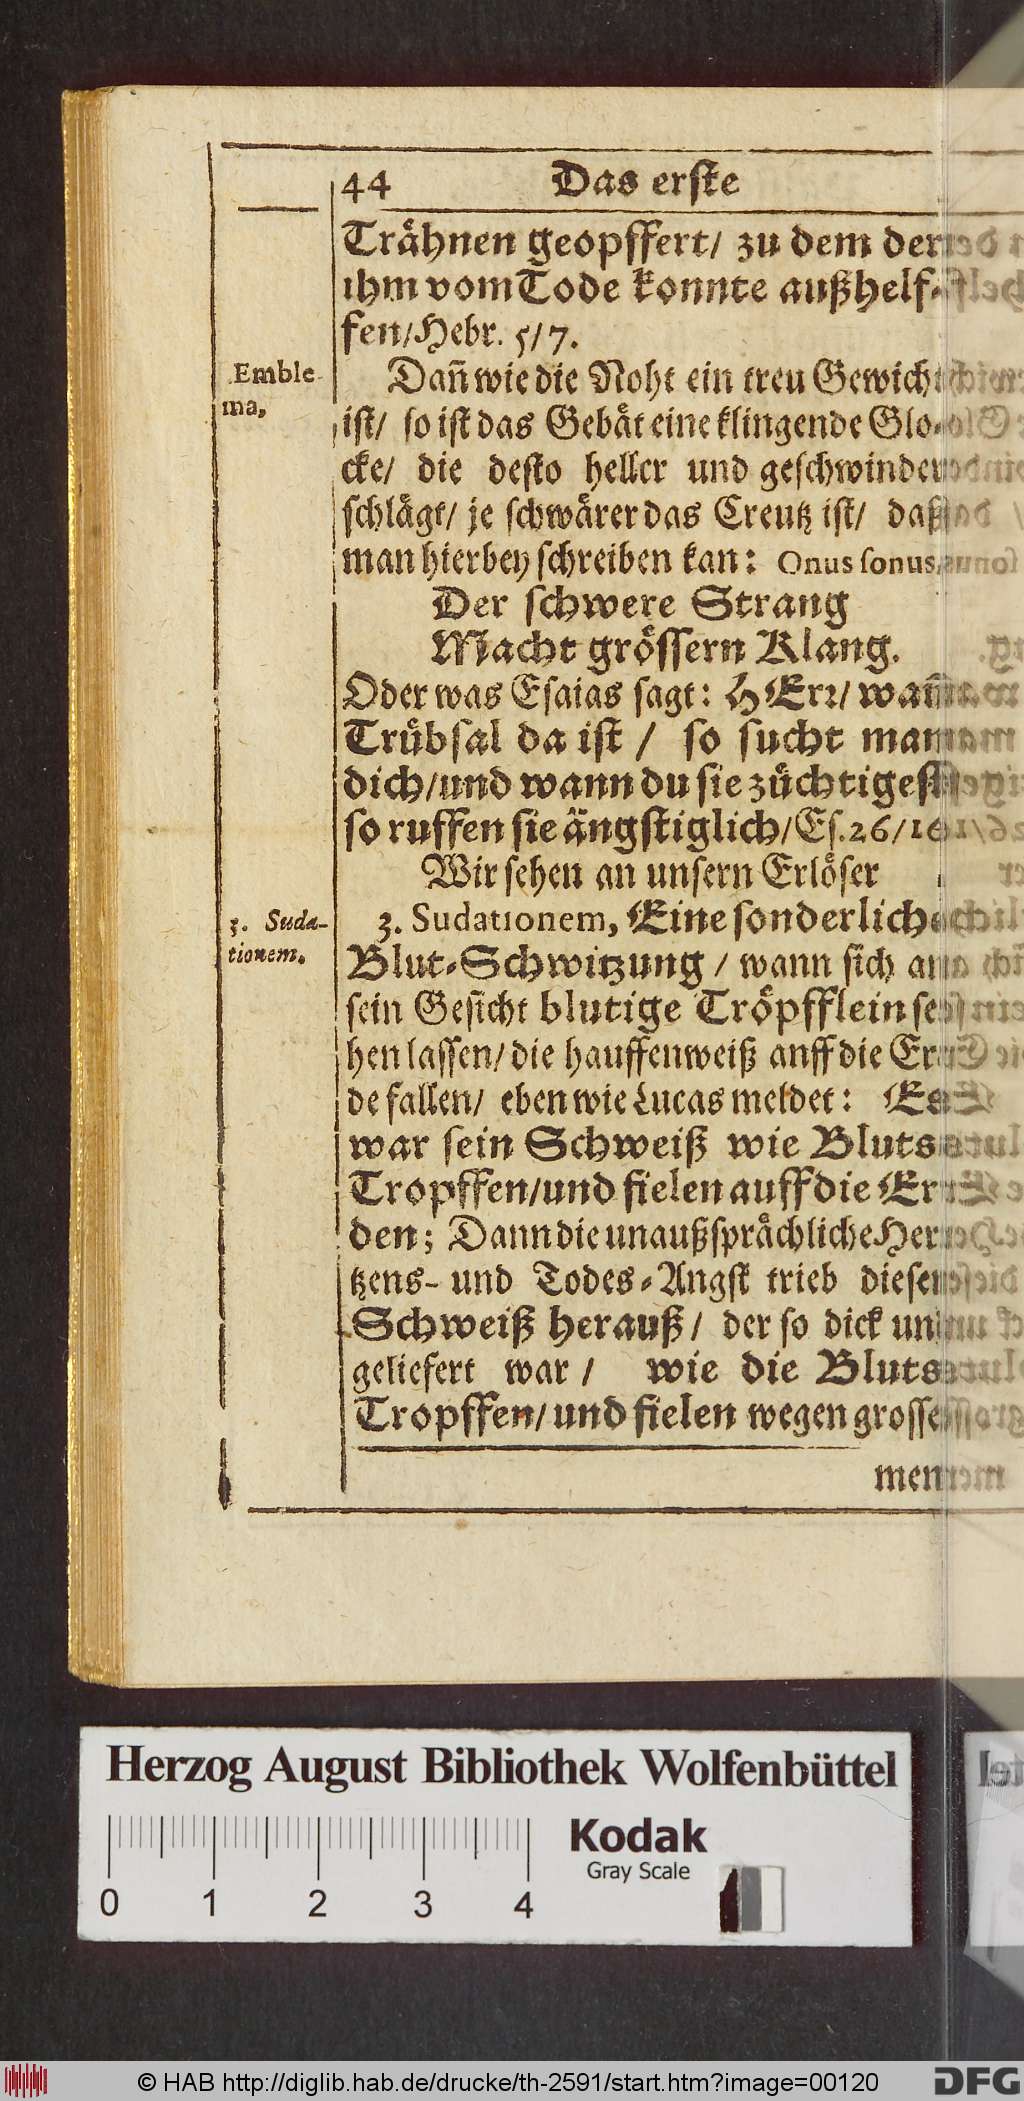 44 Das erste
Trähnen geopffert/ zu dem der
ihm vom Tode konnte außhelf-
fen/Hebr. 5/7.
Emble-
ma,
Dañ wie die Noht ein treu Gewicht
ist/ so ist das Gebät eine klingende Glo-
cke/ die desto heller und geschwinder
schlägt/ je schwärer das Creutz ist/ daß
man hierbey schreiben kan: Onus sonus,
Der schwere Strang
Macht grössern Klang.
Oder was Esaias sagt: HErr/ wañ
Trübsal da ist / so sucht man
dich/und wann du sie züchtigest
so ruffen sie ängstiglich/Es.26/16
Wir sehen an unsern Erlöser
3. Suda-
tionem.
3. Sudationem, Eine sonderliche
Blut-Schwitzung / wann sich an
sein Gesicht blutige Tröpfflein se-
hen lassen/ die hauffenweiß auff die Er-
de fallen/ eben wie Lucas meldet: Es
war sein Schweiß wie Bluts
Tropffen/und fielen auff die Er-
den; Dann die unaußsprächliche Her-
tzens- und Todes-Angst trieb diesen
Schweiß herauß/ der so dick und
geliefert war / wie die Bluts
Tropffen/ und fielen wegen grosse
men
Herzog August Bibliothek Wolfenbüttel
0 1 2 3 4
Kodak
Gray Scale
© HAB http://diglib.hab.de/drucke/th-2591/start.htm?image=00120
DFG